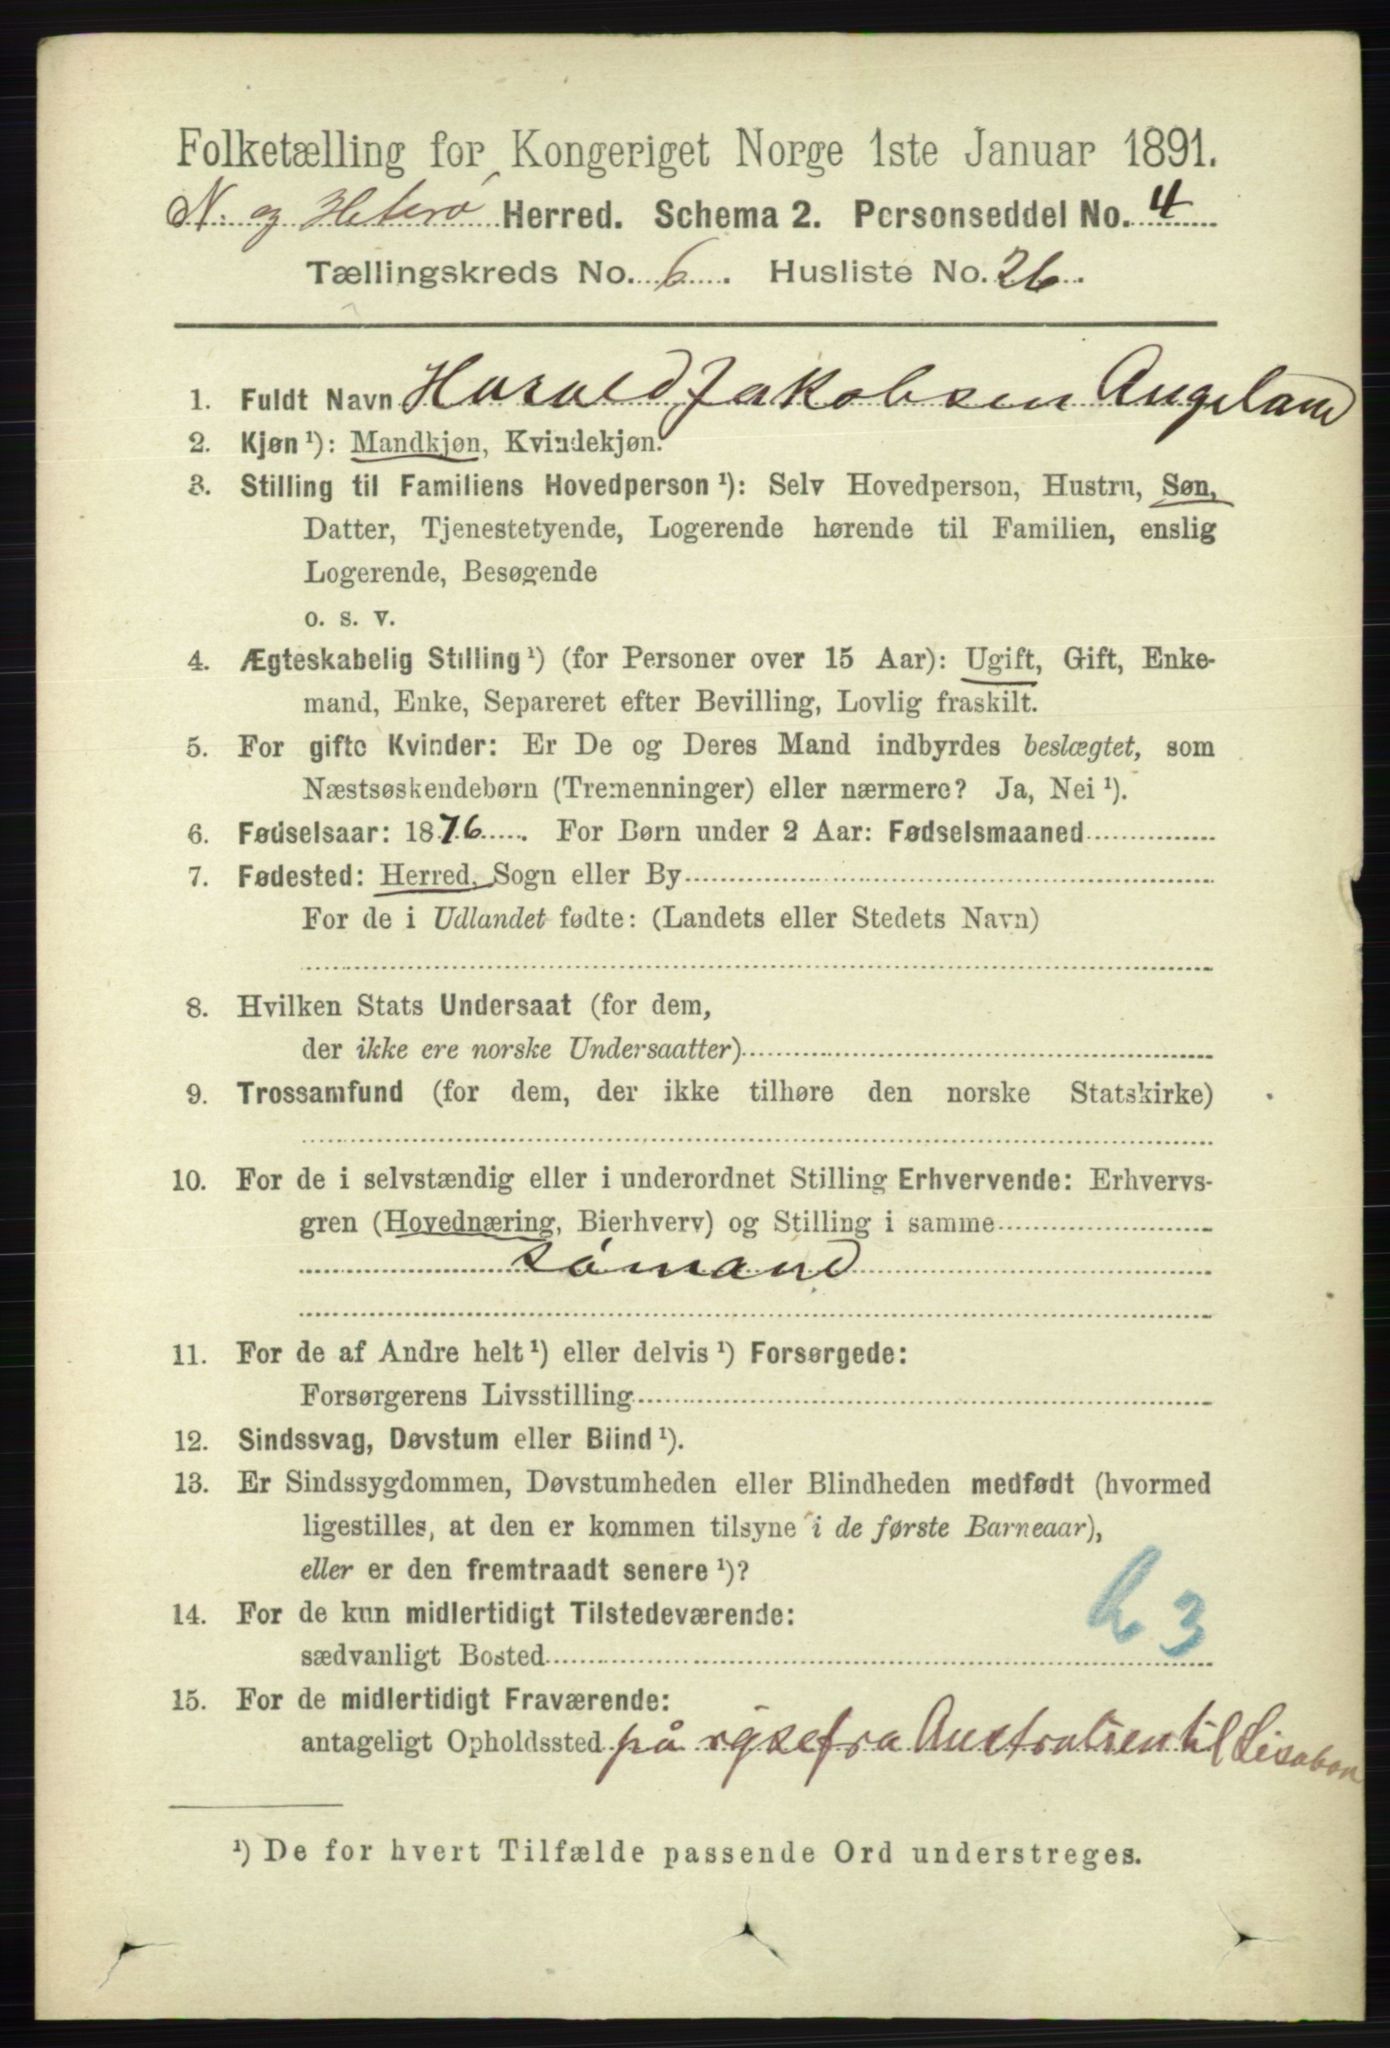 Folketælling for Kongeriget Norge 1ste Januar 1891.
N. og Hiterø Herred. Schema 2. Personseddel No. 4
Tællingskreds No. 6. Husliste No. 26.
1. Fuldt Navn Harald Jakobsen Angeland
2. Kjøn ¹): Mandkjøn, Kvindekjøn.
3. Stilling til Familiens Hovedperson ¹): Selv Hovedperson, Hustru, Søn,
Datter, Tjenestetyende, Logerende hørende til Familien, enslig
Logerende, Besøgende
o. s. v.
4. Ægteskabelig Stilling ¹) (for Personer over 15 Aar): Ugift, Gift, Enke-
mand, Enke, Separeret efter Bevilling, Lovlig fraskilt.
5. For gifte Kvinder: Er De og Deres Mand indbyrdes beslægtet, som
Næstsøskendebørn (Tremenninger) eller nærmere? Ja, Nei ¹).
6. Fødselsaar: 1876. For Børn under 2 Aar: Fødselsmaaned
7. Fødested: Herred, Sogn eller By
For de i Udlandet fødte: (Landets eller Stedets Navn)
8. Hvilken Stats Undersaat (for dem,
der ikke ere norske Undersaatter)
9. Trossamfund (for dem, der ikke tilhøre den norske Statskirke)
10. For de i selvstændig eller i underordnet Stilling Erhvervende: Erhvervs-
gren (Hovednæring, Bierhverv) og Stilling i samme
sömand
11. For de af Andre helt ¹) eller delvis ¹) Forsørgede:
Forsørgerens Livsstilling
12. Sindssvag, Døvstum eller Blind ¹).
13. Er Sindssygdommen, Døvstumheden eller Blindheden medfødt (hvormed
ligestilles, at den er kommen tilsyne i de første Barneaar),
eller er den fremtraadt senere ¹)?
14. For de kun midlertidigt Tilstedeværende:
sædvanligt Bosted
h 3
15. For de midlertidigt Fraværende:
antageligt Opholdssted på rejse fra Australien til Lisabon
¹) De for hvert Tilfælde passende Ord understreges.